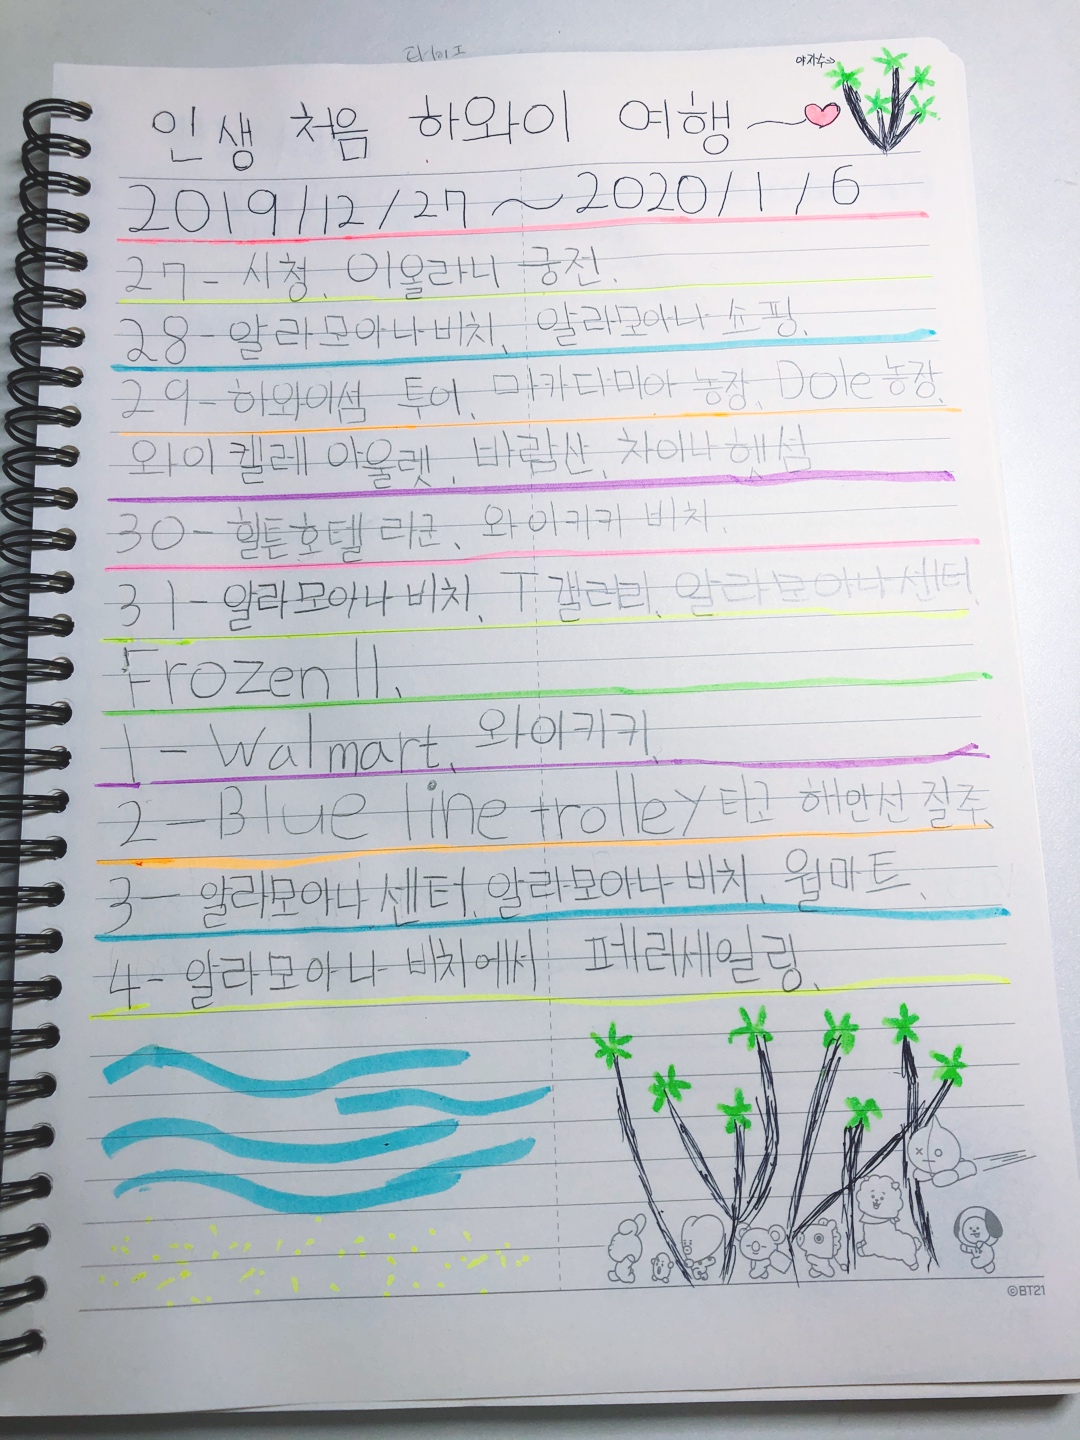 야자수->
인생 처음 하와이 여행~
2019/12/27 ~ 2020/1/6
27- 시청, 이올라니 궁전.
28- 알라모아나비치, 알라모아나 쇼핑,
29- 하와이섬 투어, 마카다미아 농장, Dole 농장,
와이켈레 아울렛, 바람산, 차이나햇섬
30- 힐튼호텔 라군, 와이키키 비치.
31- 알라모아나 비치, T 갤러리, 알라모아나 센터,
Frozen II,
1 - Walmart, 와이키키,
2 - Blue line trolley 타고 해안선 질주,
3 - 알라모아나 센터, 알라모아나 비치, 월마트,
4- 알라모아나 비치에서 페러세일링,
©BT21